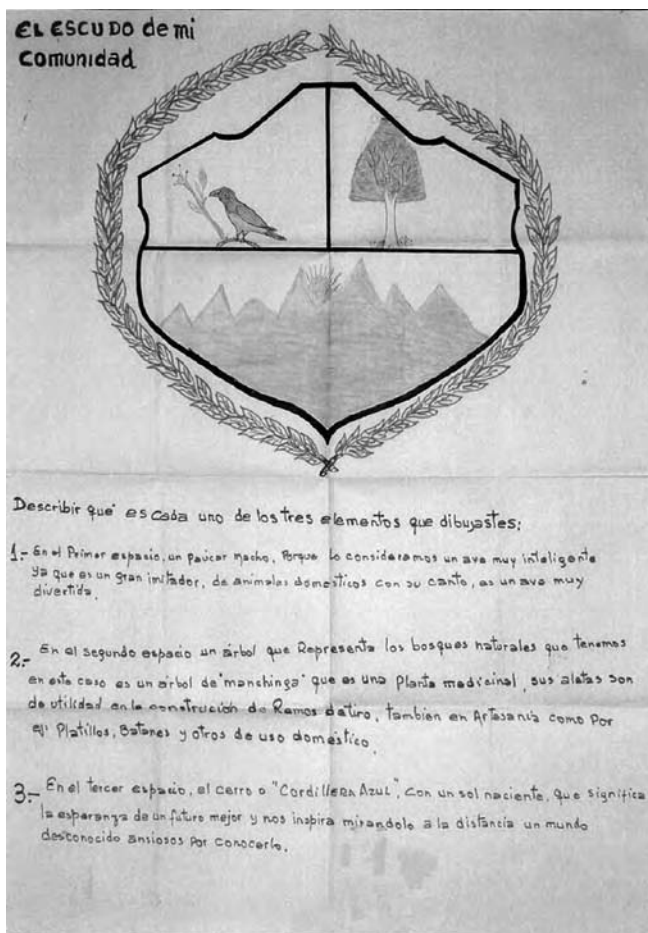 EL ESCUDO de mi
Comunidad
Describir que es cada uno de los tres elementos que dibujastes:
1.- En el Primer espacio, un paucar macho, Porque lo consideramos un ave muy inteligente
ya que es un gran imitador, de animales domesticos con su canto, es un ave muy
divertida.
2.- En el segundo espacio un árbol que Representa los bosques naturales que tenemos
en este caso es un árbol de "manchinga" que es una Planta medicinal, sus aletas son
de utilidad en la construcción de Remos de tiro, tambien en Artesanía como Por
ej: Platillos, Batanes y otros de uso doméstico.
3.- En el tercer espacio, el cerro o "Cordillera Azul", Con un sol naciente, que significa
la esperanza de un futuro mejor y nos inspira mirandolo a la distancia un mundo
desconocido ansiosos por conocerlo.